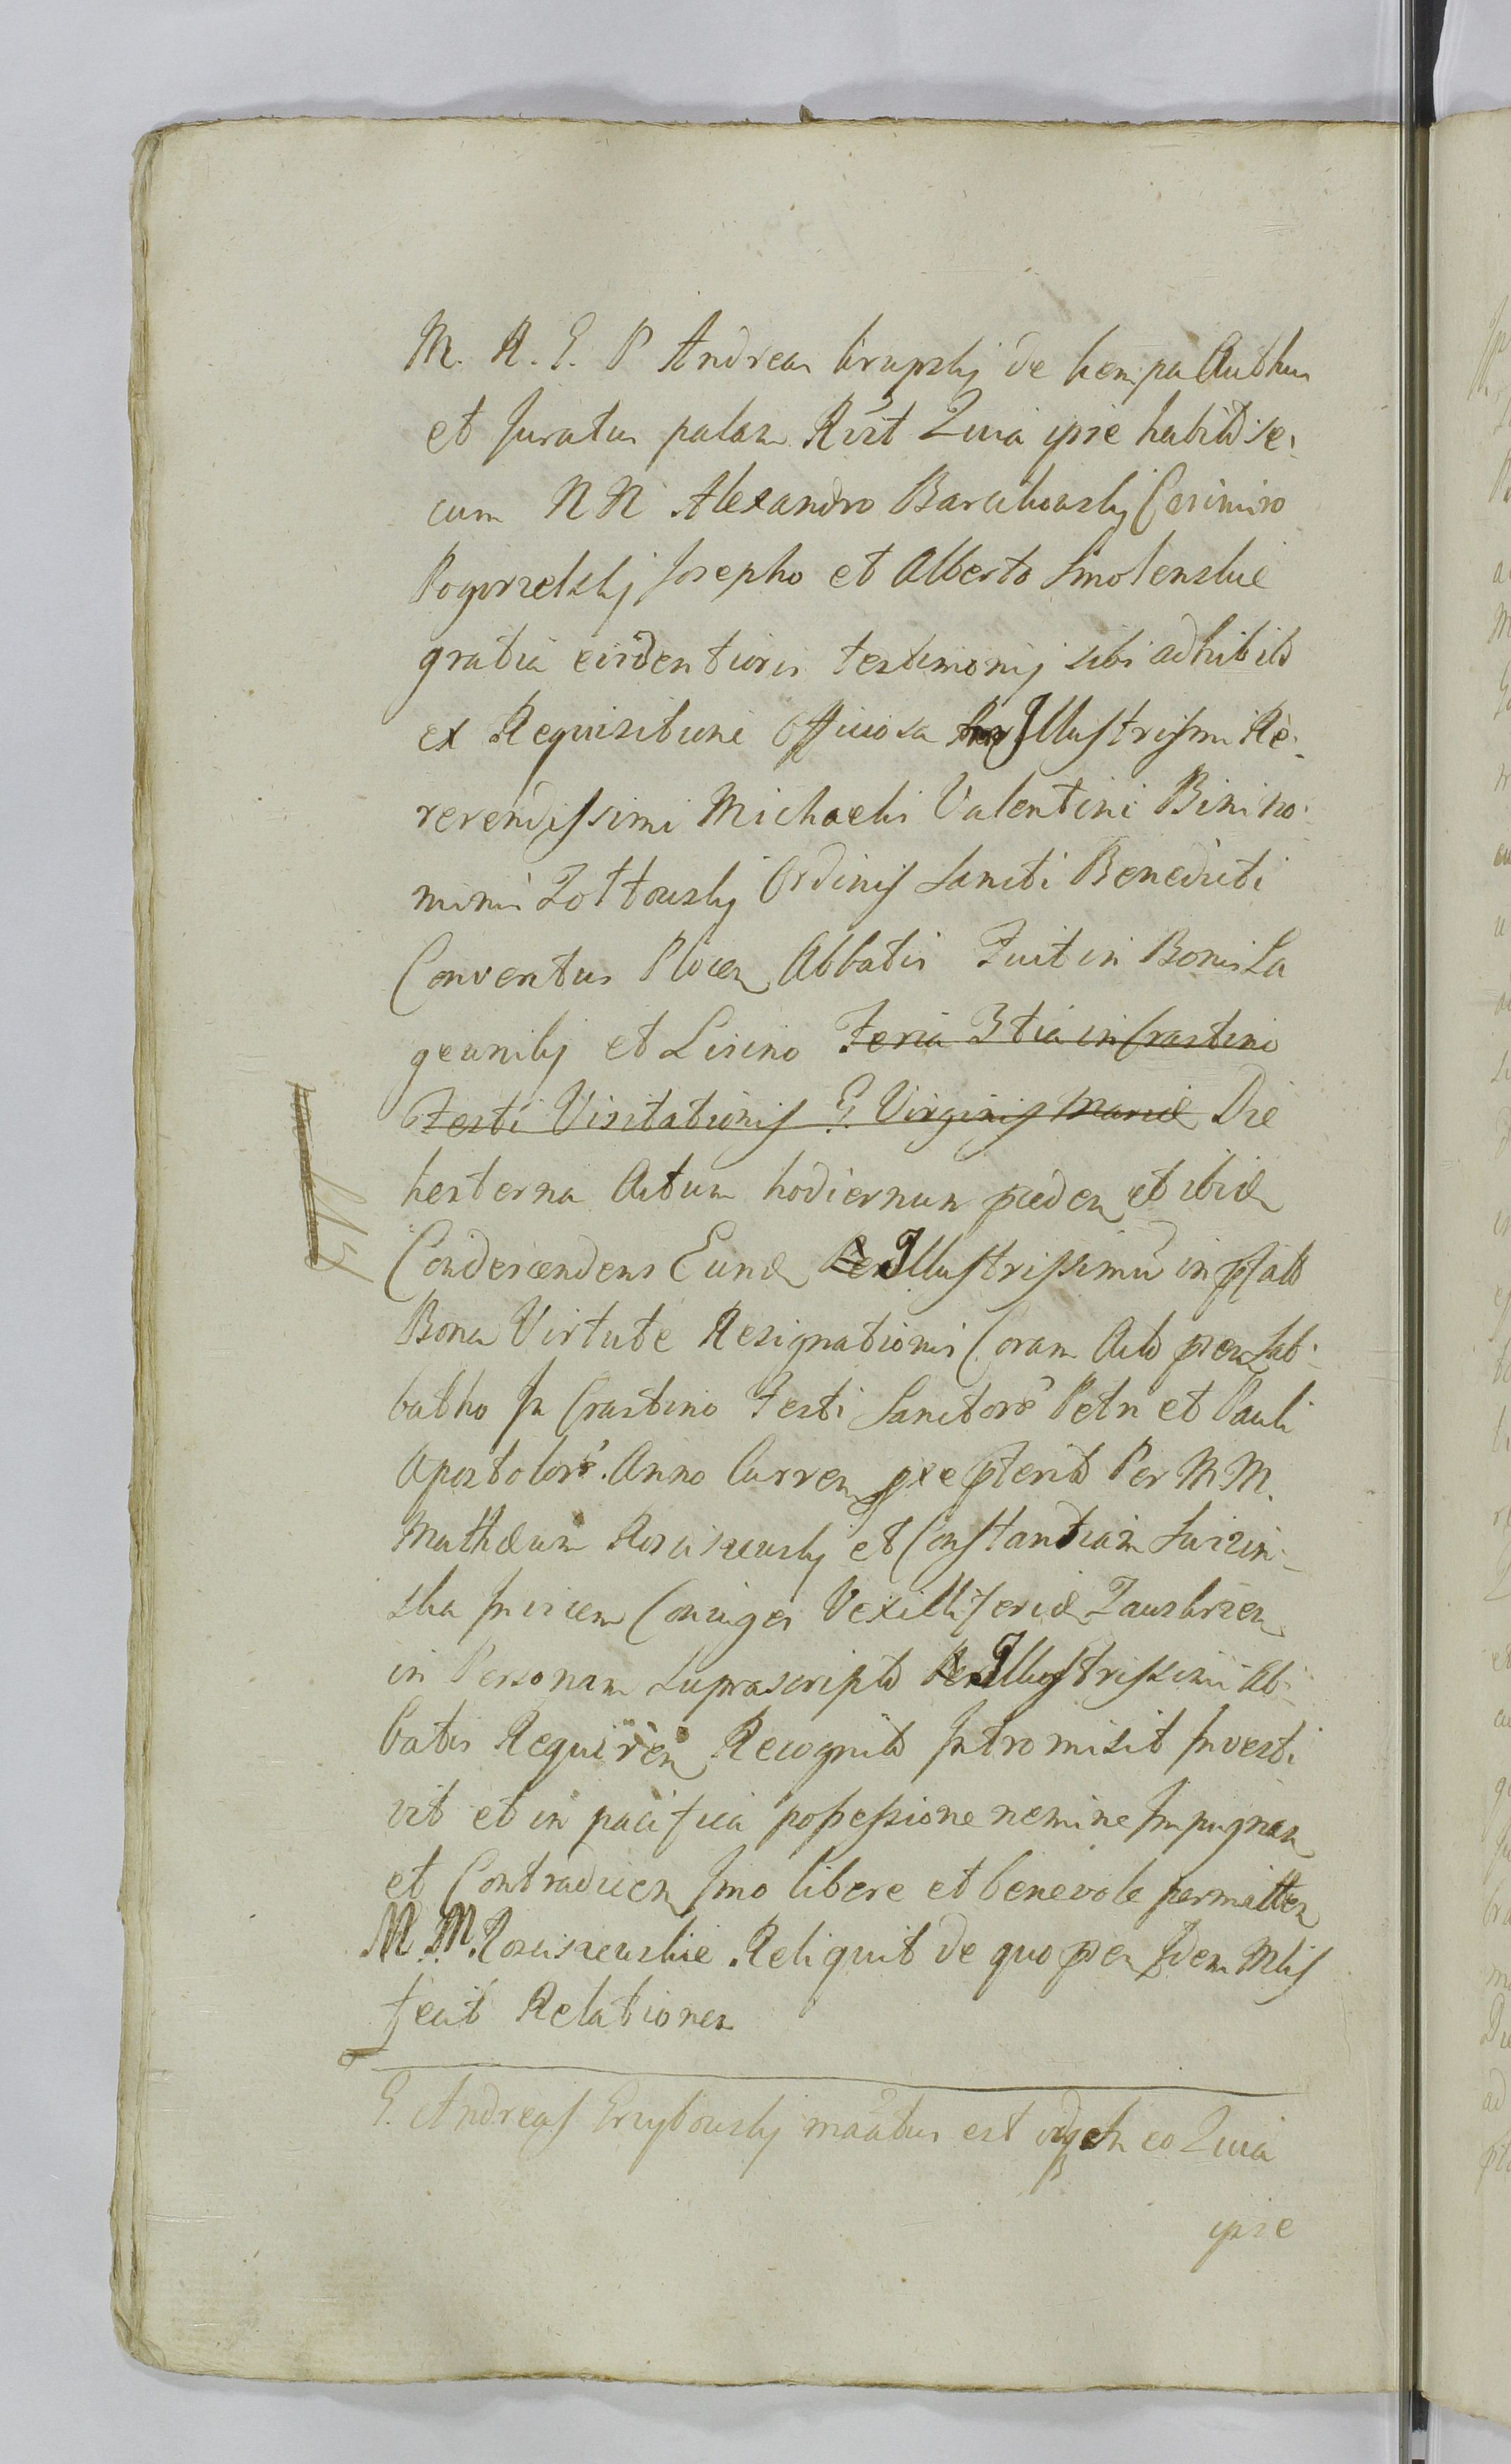 M. R. G. P Andreas Krupskj de Kempa Authen
et Juratus palam Rūt Quia ipse habitis se¬
cum NN Alexandro Barcikowskj Casimiro
Pogorzelskj Josepho et Alberto Smolenskie
gratia evidentioris testimonij sibi adhibit
ex Requisitione Officiosa Illustrissimi Re¬
verendissimi Michaelis Valentini Bini no¬
minis Zołtowskj Ordinis Sancti Benedicti
Conventus Plocen Abbatis Fuit in Bonis La
gewnikj et Lisino Feria 3tia in Crastino
Festi Visitationis G. Virginis Mariæ Die
hesterna Actum hodiernum præden et ibid
Condescendens Eund Illustrissimū in pfatt
Bona Virtute Resignationis Coram Actis pñ Sab¬
batho In Crastino Festi Sanctorū Petri et Pauli
Apostolorū. Anno Curren præpterit Per MM.
Mathæum Rosciszewskj et Constantiam
ska Invicem Conjuges Vexilliferid Zawskrzen
in Personam Suprascripti Illustrissimi Ab¬
batis Requiren Recognit Intromisit Investi
vit et in pacifica possessione nemine Impugnan
et Contradicen Imo libere et benevole permitten
M M. Rosciszewskie Reliquit de quo pñ Idem Mlis
fecit Relationem
G. Andreas Grzybowskj maatus est eo Quia
ipse